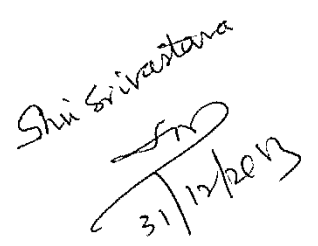 Shri Srivastara
31/12/2013